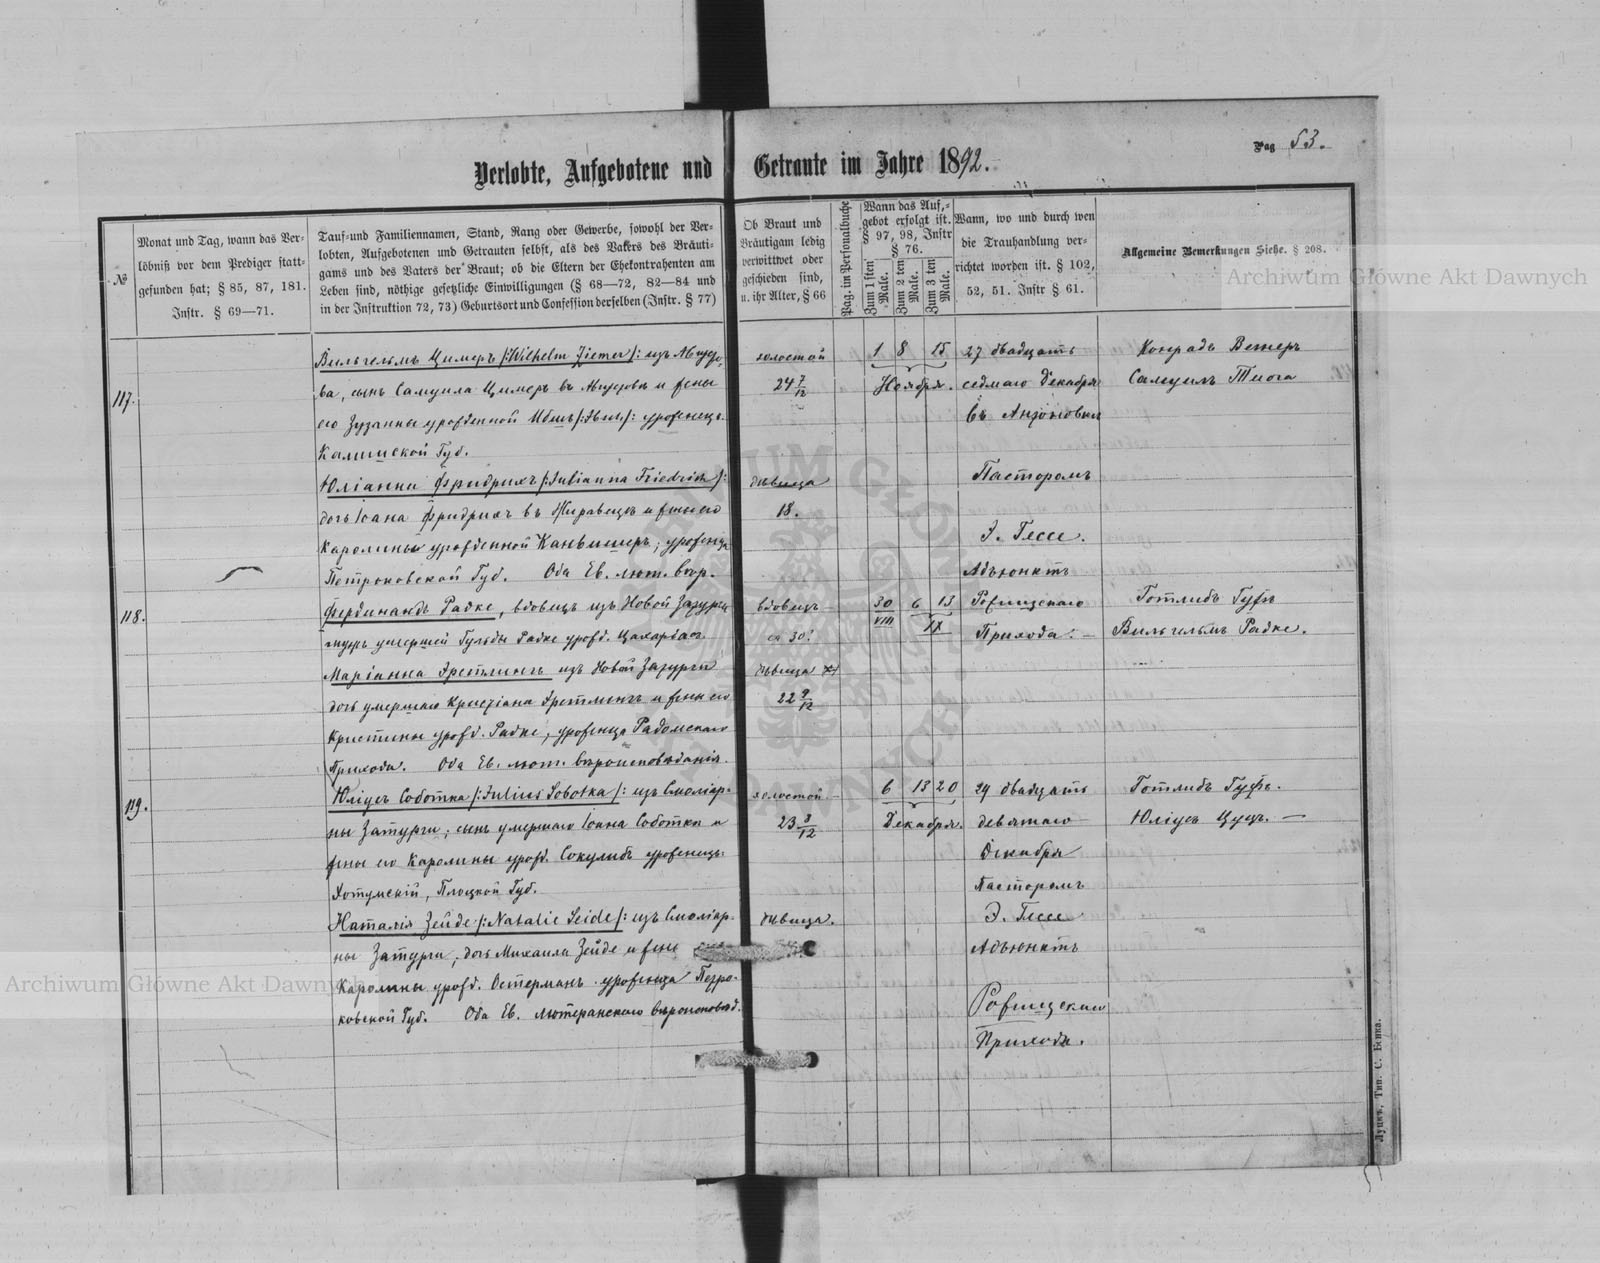 Pag 53.
Verlobte, Aufgebotene und Getraute im Jahre 1892.
№
Monat und Tag, wann das Ver-
löbniß vor dem Prediger statt-
gefunden hat; § 85, 87, 181.
Instr. § 69—71.
Tauf- und Familiennamen, Stand, Rang oder Gewerbe, sowohl der Ver-
lobten, Aufgebotenen und Getrauten selbst, als des Vaters des Bräuti-
gams und des Vaters der Braut; ob die Eltern der Ehekontrahenten am
Leben sind, nöthige gesetzliche Einwilligungen (§ 68—72, 82—84 und
in der Instruktion 72, 73) Geburtsort und Confession derselben (Instr. § 77)
Ob Braut und
Bräutigam ledig
verwittwet oder
geschieden sind,
u. ihr Alter, § 66
Pag. im Personalbuche
Wann das Auf-
gebot erfolgt ist.
§ 97, 98, Instr
§ 76.
Zum 1 sten Male.
Zum 2 ten Male.
Zum 3 ten Male.
Wann, wo und durch wen
die Trauhandlung ver-
richtet worden ist. § 102,
52, 51. Instr § 61.
Allgemeine Bemerkungen Siehe. § 208.
117.
Вильгельмъ Цимеръ /:Wilhelm Ziemer/: изъ
ва, сынъ Самуила Цимеръ въ и жены
его Зузанны урожденной уроженецъ
Калишской Губ.
Юліанна Фридрихъ /:Julianna Friedrich/:
дочь Іоана Фридрихъ въ и жены его
Каролины урожденной уроженца
Петроковской Губ. Оба Ев. лют. вѣр.
холостой
24 7/12
дѣвица
18.
1 8 15
Ноября.
27 двадцать
седмаго Декабря
въ
Пасторомъ
Э. Гессе.
Адъюнктъ
Рожищскаго
Прихода. —
Конрадъ Ветеръ
Самуилъ Тиога
118.
Фердинандъ Радке, вдовецъ изъ Новой
мужъ умершей Гульды Радке урожд.
Маріанна изъ Новой
дочь умершаго Христіана и жены его
Христины урожд. Радке, уроженца Радомскаго
Прихода. Оба Ев. лют. вѣроисповѣданія.
вдовецъ
30.
дѣвица
22 9/12
30 6 13
VIII IX
Готлибъ Гуфъ
Вильгельмъ Радке.
119.
Юліусъ Соботка /:Julius Sobotka/: изъ Смоляр-
ны Затурги, сынъ умершаго Іоана Соботка и
жены его Каролины урожд. уроженецъ
Плоцкой Губ.
Наталія Зейде /:Natalie Seide/: изъ Смоляр-
ны Затурги, дочь Михаила Зейде и жены
Каролины урожд. Остерманъ уроженца Петро-
ковской Губ. Оба Ев. лютеранскаго вѣроисповѣд.
холостой
23 3/12
дѣвица.
6 13 20
Декабря.
29 двадцать
девятаго
Декабря
Пасторомъ
Э. Гессе
Адъюнктъ
Рожищскаго
Прихода.
Готлибъ Гуфъ.
Юліусъ Цуцъ. —
Луцкъ, Тип. С. Бенка.
Archiwum Główne Akt Dawnych
Archiwum Główne Akt Dawnych